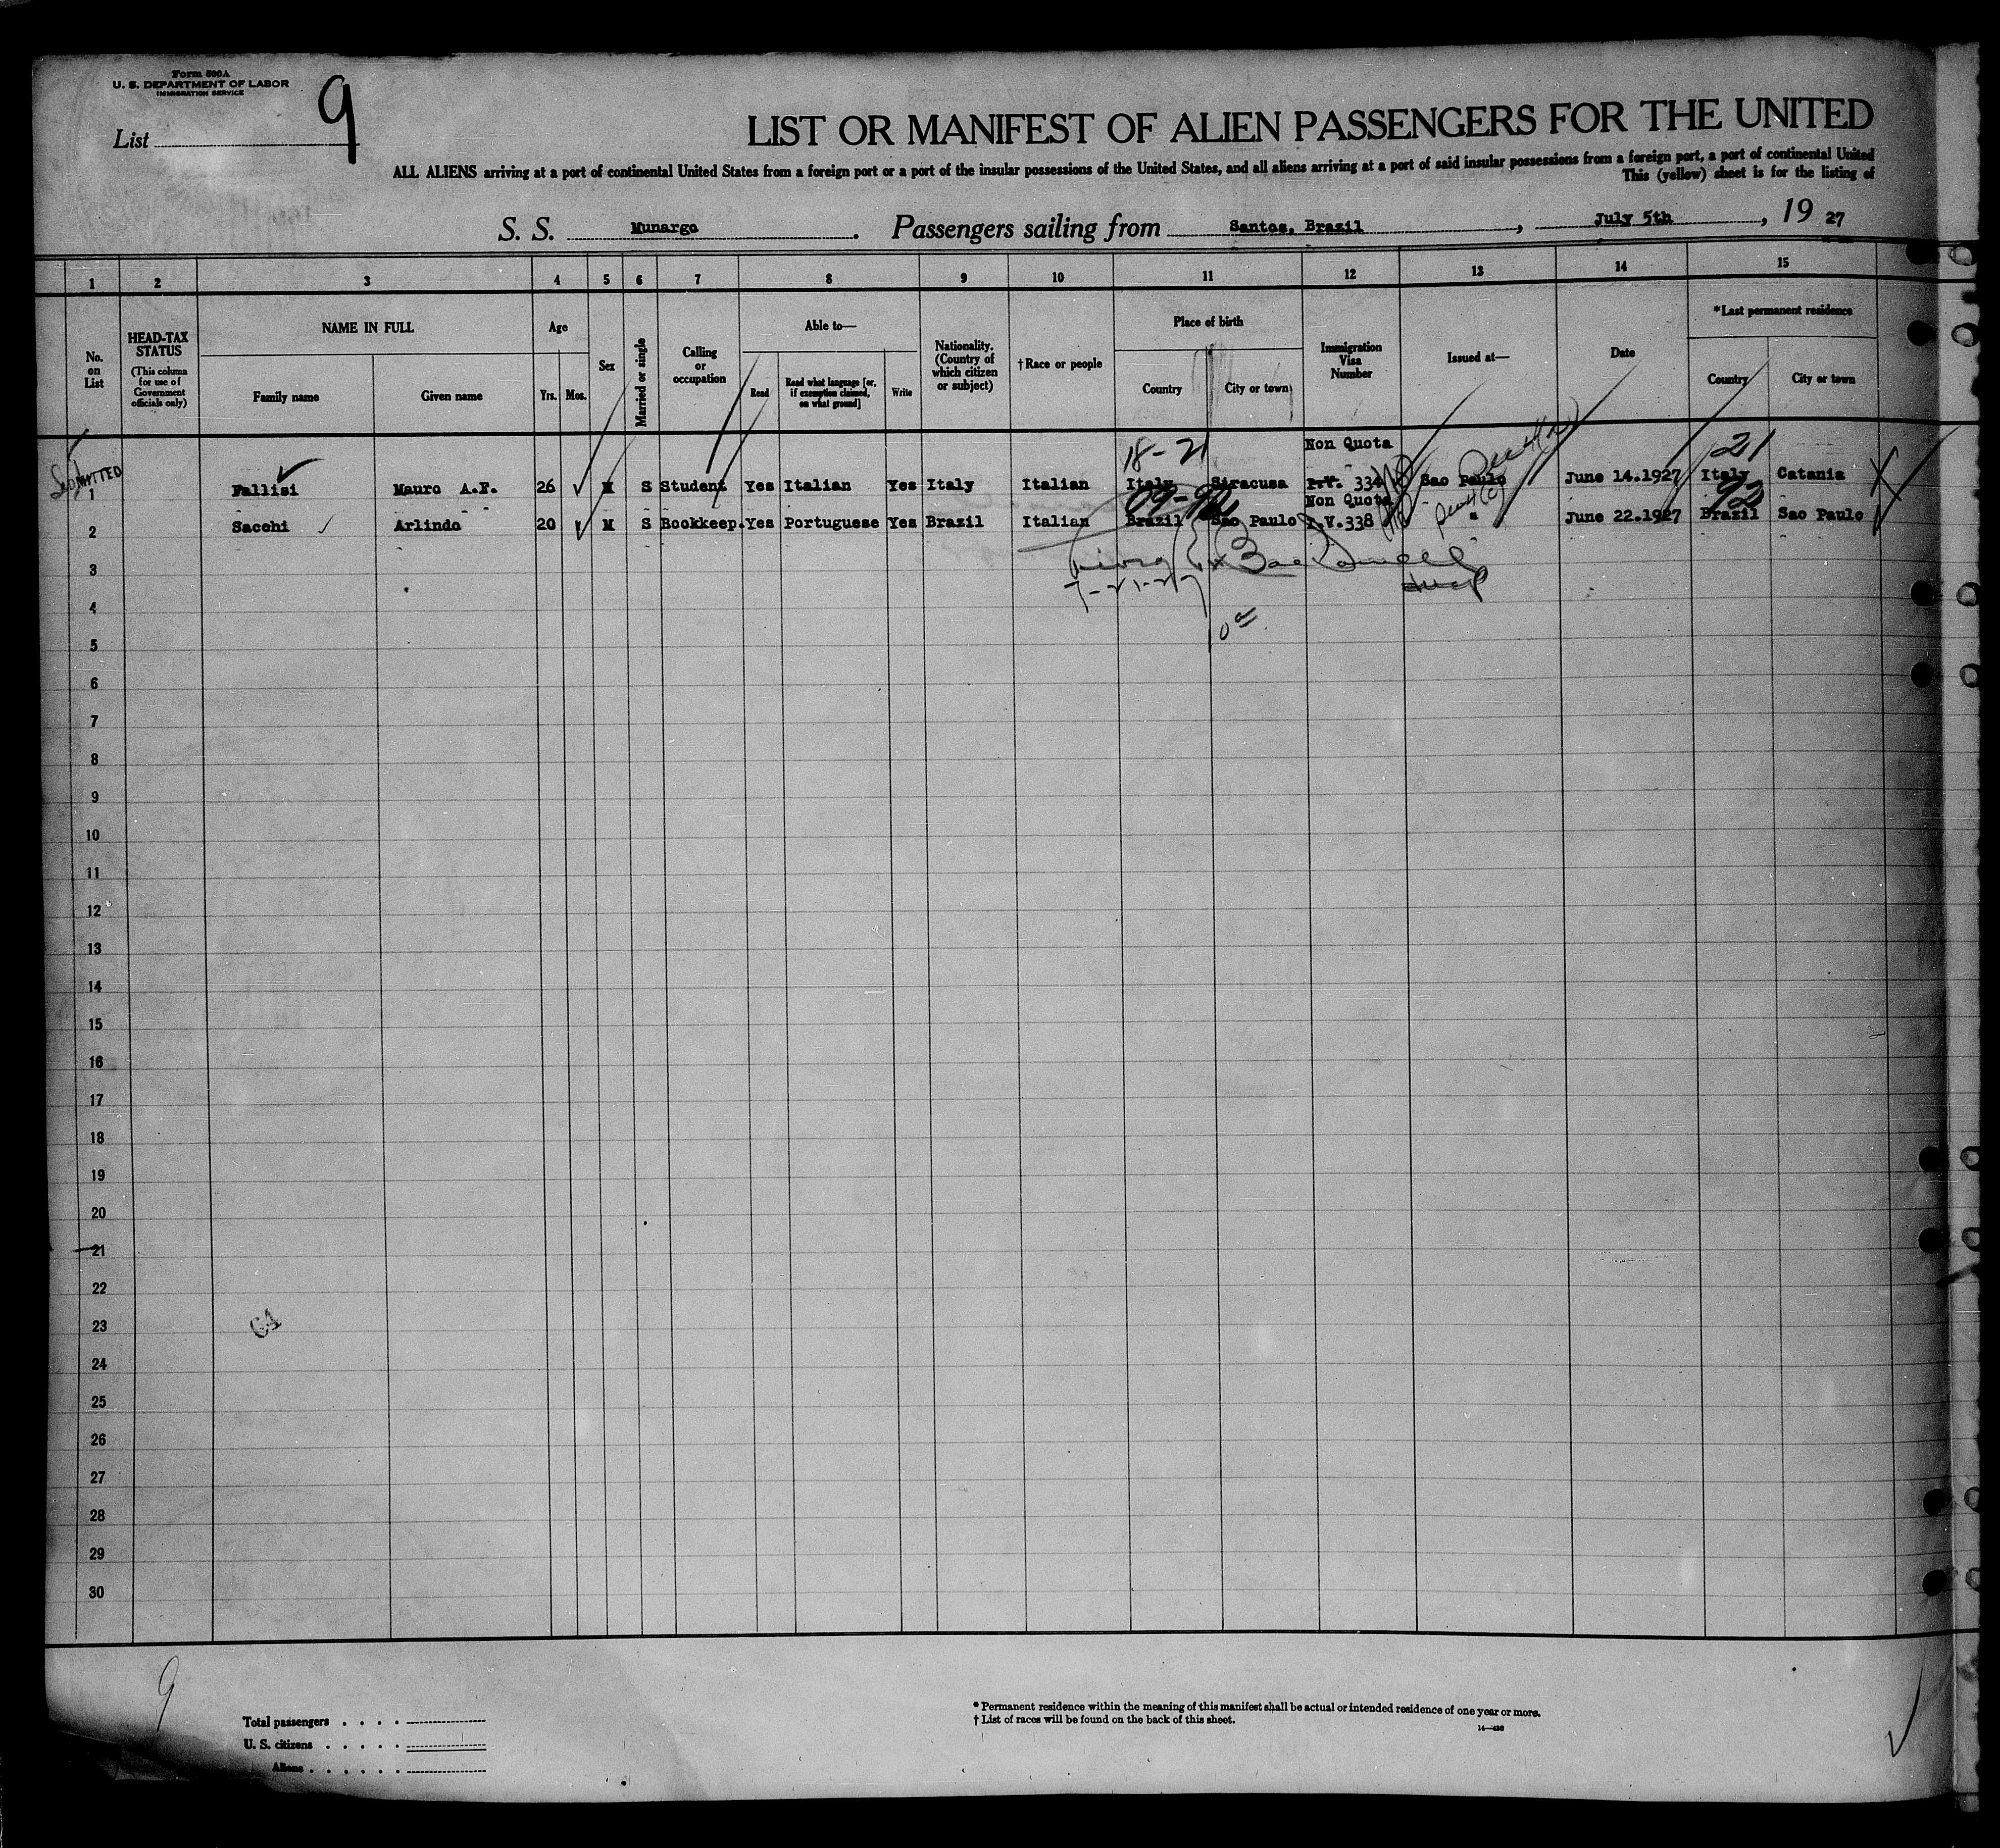 Form 500A
U. S. DEPARTMENT OF LABOR
IMMIGRATION SERVICE
List 9
LIST OR MANIFEST OF ALIEN PASSENGERS FOR THE UNITED
ALL ALIENS arriving at a port of continental United States from a foreign port or a port of the insular possessions of the United States, and all aliens arriving at a port of said insular possessions from a foreign port, a port of continental United
This (yellow) sheet is for the listing of
S. S. Munargo. Passengers sailing from Santos, Brazil, July 5th, 19 27
1 2 3 4 5 6 7 8 9 10 11 12 13 14 15
No. on List
HEAD-TAX STATUS (This column for use of Government officials only)
NAME IN FULL
Family name
Given name
Age
Yrs.
Mos.
Sex
Married or single
Calling or occupation
Able to—
Read
Read what language [or, if exemption claimed, on what ground]
Write
Nationality. (Country of which citizen or subject)
†Race or people
Place of birth
Country
City or town
Immigration Visa Number
Issued at—
Date
*Last permanent residence
Country
City or town
18-21
Non Quota
21
ADMITTED
1 Fallisi Mauro A.F. 26 M S Student Yes Italian Yes Italy Italian Italy Siracusa P.V. 334 Sao Paulo June 14.1927 Italy Catania
Non Quota
92
2 Sacchi Arlindo 20 M S Bookkeep. Yes Portuguese Yes Brazil Italian Brazil Sao Paulo I.V.338 " June 22.1927 Brazil Sao Paulo
3
7-21-27
4
5
6
7
8
9
10
11
12
13
14
15
16
17
18
19
20
21
22
23
24
25
26
27
28
29
30
9
Total passengers
U. S. citizens
Aliens
* Permanent residence within the meaning of this manifest shall be actual or intended residence of one year or more.
† List of races will be found on the back of this sheet.